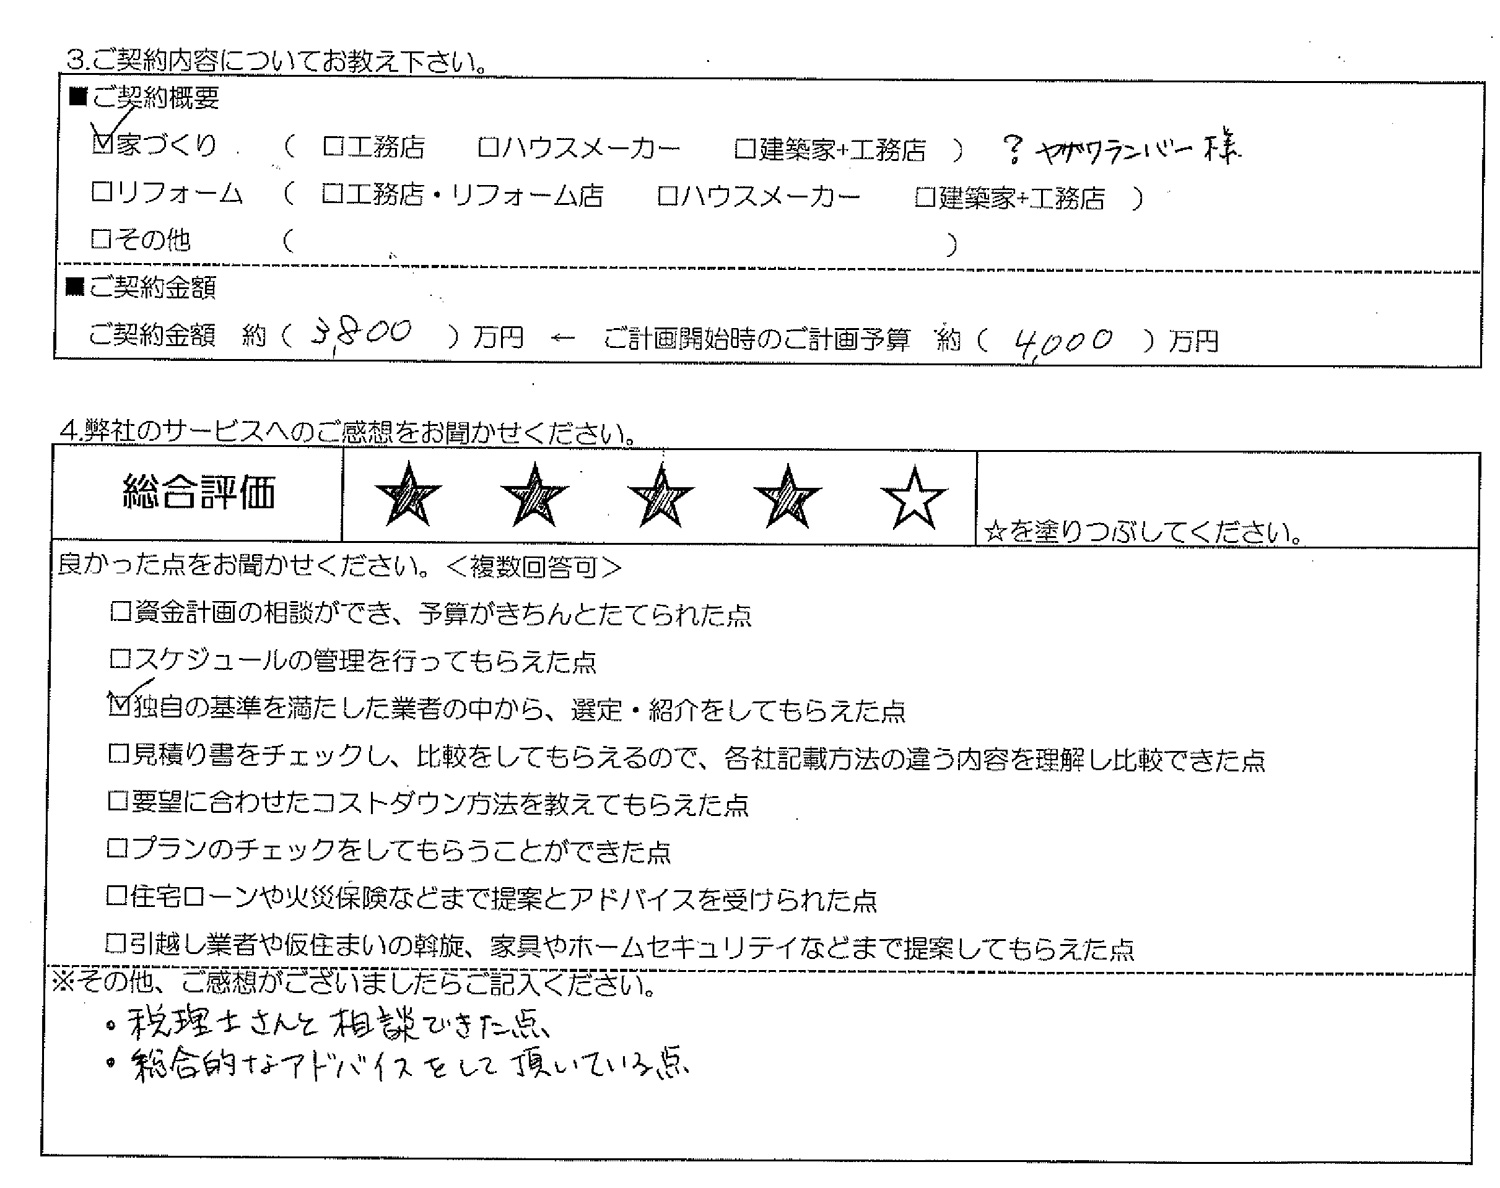 3.ご契約内容についてお教え下さい。
■ご契約概要
☑家づくり ( □工務店 □ハウスメーカー □建築家+工務店 ) ? ヤザワランバー様
□リフォーム ( □工務店・リフォーム店 □ハウスメーカー □建築家+工務店 )
□その他 ( )
■ご契約金額
ご契約金額 約 ( 3,800 ) 万円 ← ご計画開始時のご計画予算 約 ( 4,000 ) 万円
4.弊社のサービスへのご感想をお聞かせください。
総合評価 ★ ★ ★ ★ ☆ ☆を塗りつぶしてください。
良かった点をお聞かせください。<複数回答可>
□資金計画の相談ができ、予算がきちんとたてられた点
□スケジュールの管理を行ってもらえた点
☑独自の基準を満たした業者の中から、選定・紹介をしてもらえた点
□見積り書をチェックし、比較をしてもらえるので、各社記載方法の違う内容を理解し比較できた点
□要望に合わせたコストダウン方法を教えてもらえた点
□プランのチェックをしてもらうことができた点
□住宅ローンや火災保険などまで提案とアドバイスを受けられた点
□引越し業者や仮住まいの斡旋、家具やホームセキュリテイなどまで提案してもらえた点
※その他、ご感想がございましたらご記入ください。
・税理士さんと相談できた点、
・総合的なアドバイスをして頂いている点